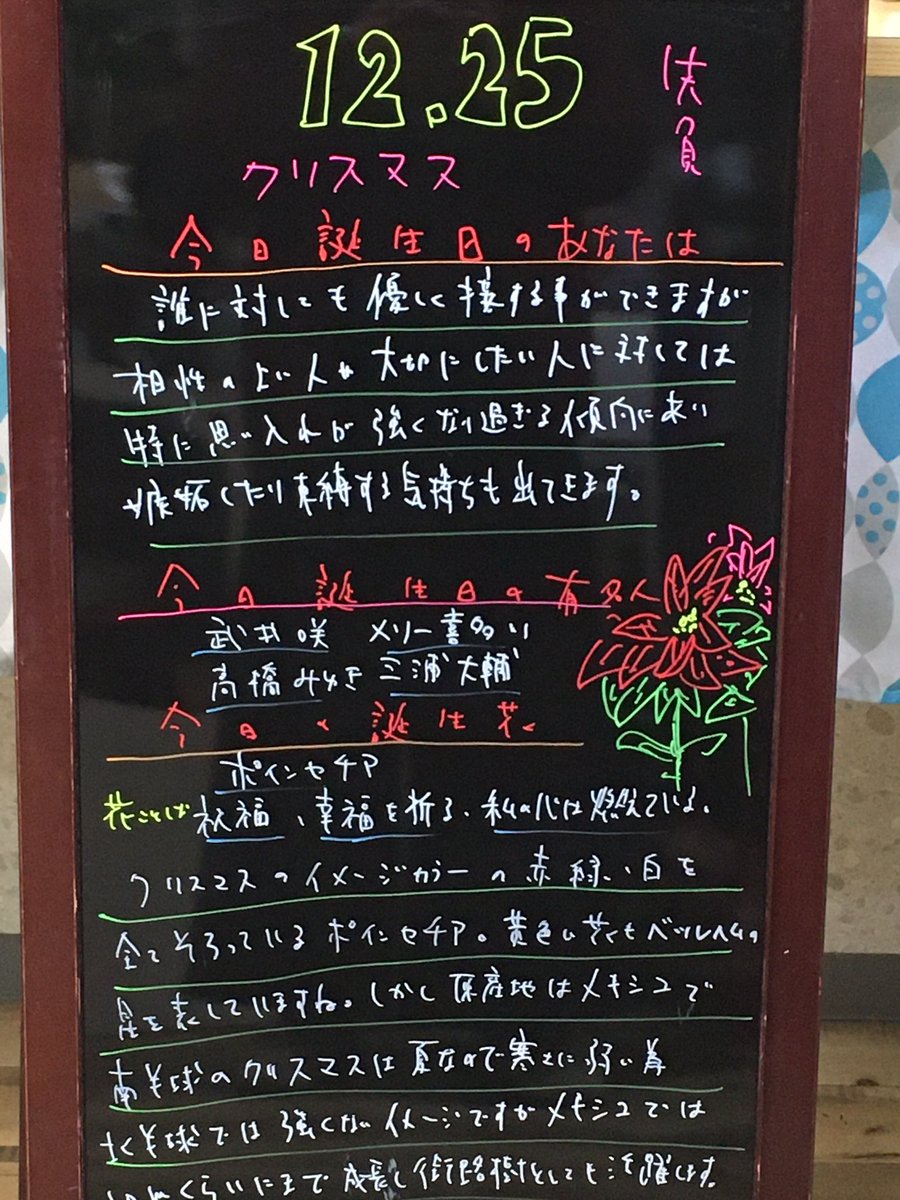 12.25
先負
クリスマス
今日誕生日のあなたは
誰に対しても優しく接する事ができますが
相性のよい人や大切にしたい人に対しては
特に思い入れが強くなり過ぎる傾向にあり
嫉妬したり束縛する気持ちも出てきます。
今日誕生日の有名人
武井咲 メリー喜多川
高橋みゆき 三浦大輔
今日の誕生花
ポインセチア
花ことば 祝福、幸福を祈る、私の心は燃えている。
クリスマスのイメージカラーの赤、緑、白を
全てそろっているポインセチア。黄色い花もベツレヘムの
星を表していますね。しかし原産地はメキシコで
南半球のクリスマスは夏なので寒さに弱い為
北半球では強くないイメージですがメキシコでは
くらいにまで成長して街路樹としても活躍します。